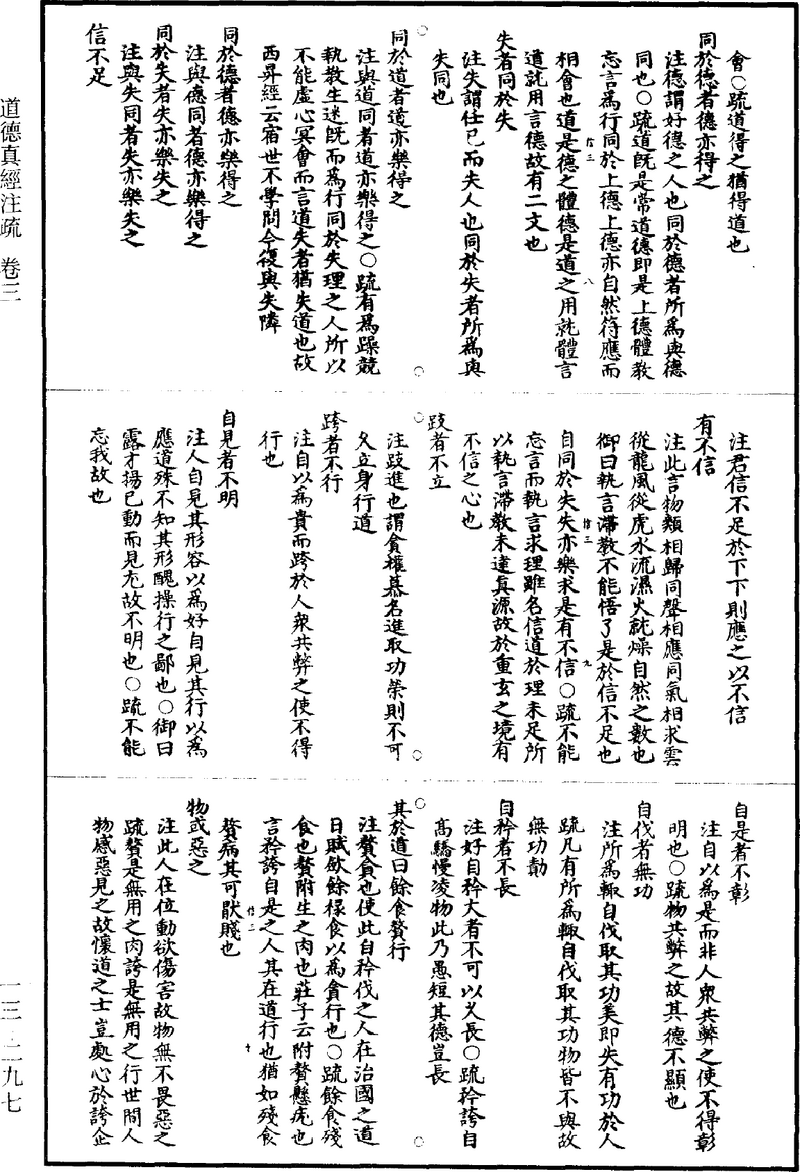 會○疏道得之猶得道也
同於德者德亦得之
注德謂好德之人也同於德者所爲與德
同也○疏道既是常道德即是上德體教
忘言爲行同於上德上德亦自然符應而
相會也道是德之體德是道之用就體言
道就用言德故有二文也
失者同於失
注失謂任己而失人也同於失者所爲與
失同也
同於道者道亦樂得之
注與道同者道亦樂得之○疏有爲躁競
執教生迷既而爲行同於失理之人所以
不能虛心冥會而言道失者猶失道也故
西昇經云宿世不學問今復與失隣
同於德者德亦樂得之
注與德同者德亦樂得之
同於失者失亦樂失之
注與失同者失亦樂失之
信不足
注君信不足於下下則應之以不信
有不信
注此言物類相歸同聲相應同氣相求雲
從龍風從虎水流濕火就燥自然之數也
御曰執言滯教不能悟了是於信不足也
自同於失失亦樂求是有不信○疏不能
忘言而執言求理雖名信道於理未足所
以執言滯教未達真源故於重玄之境有
不信之心也
跂者不立
注跂進也謂貪權慕名進取功榮則不可
久立身行道
跨者不行
注自以爲貴而跨於人衆共弊之使不得
行也
自見者不明
注人自見其形容以爲好自見其行以爲
應道殊不知其形醜操行之鄙也○御曰
露才揚己動而見尤故不明也○疏不能
忘我故也
自是者不彰
注自以爲是而非人衆共弊之使不得彰
明也○疏物共弊之故其德不顯也
自伐者無功
注所爲輒自伐取其功美即失有功於人
疏凡有所爲輒自伐取其功物皆不與故
無功勳
自矜者不長
注好自矜大者不可以久長○疏矜誇自
高驕慢凌物此乃愚短其德豈長
其於道曰餘食贅行
注贅貪也使此自矜伐之人在治國之道
日賦歛餘祿食以爲貪行也○疏餘食殘
食也贅附生之肉也莊子云附贅懸疣也
言矜誇自是之人其在道行也猶如殘食
贅病其可猒賤也
物或惡之
注此人在位動欲傷害故物無不畏惡之
疏贅是無用之肉誇是無用之行世間人
物感惡見之故懷道之士豈處心於誇企
道德真經注疏 卷三
一三·二九七